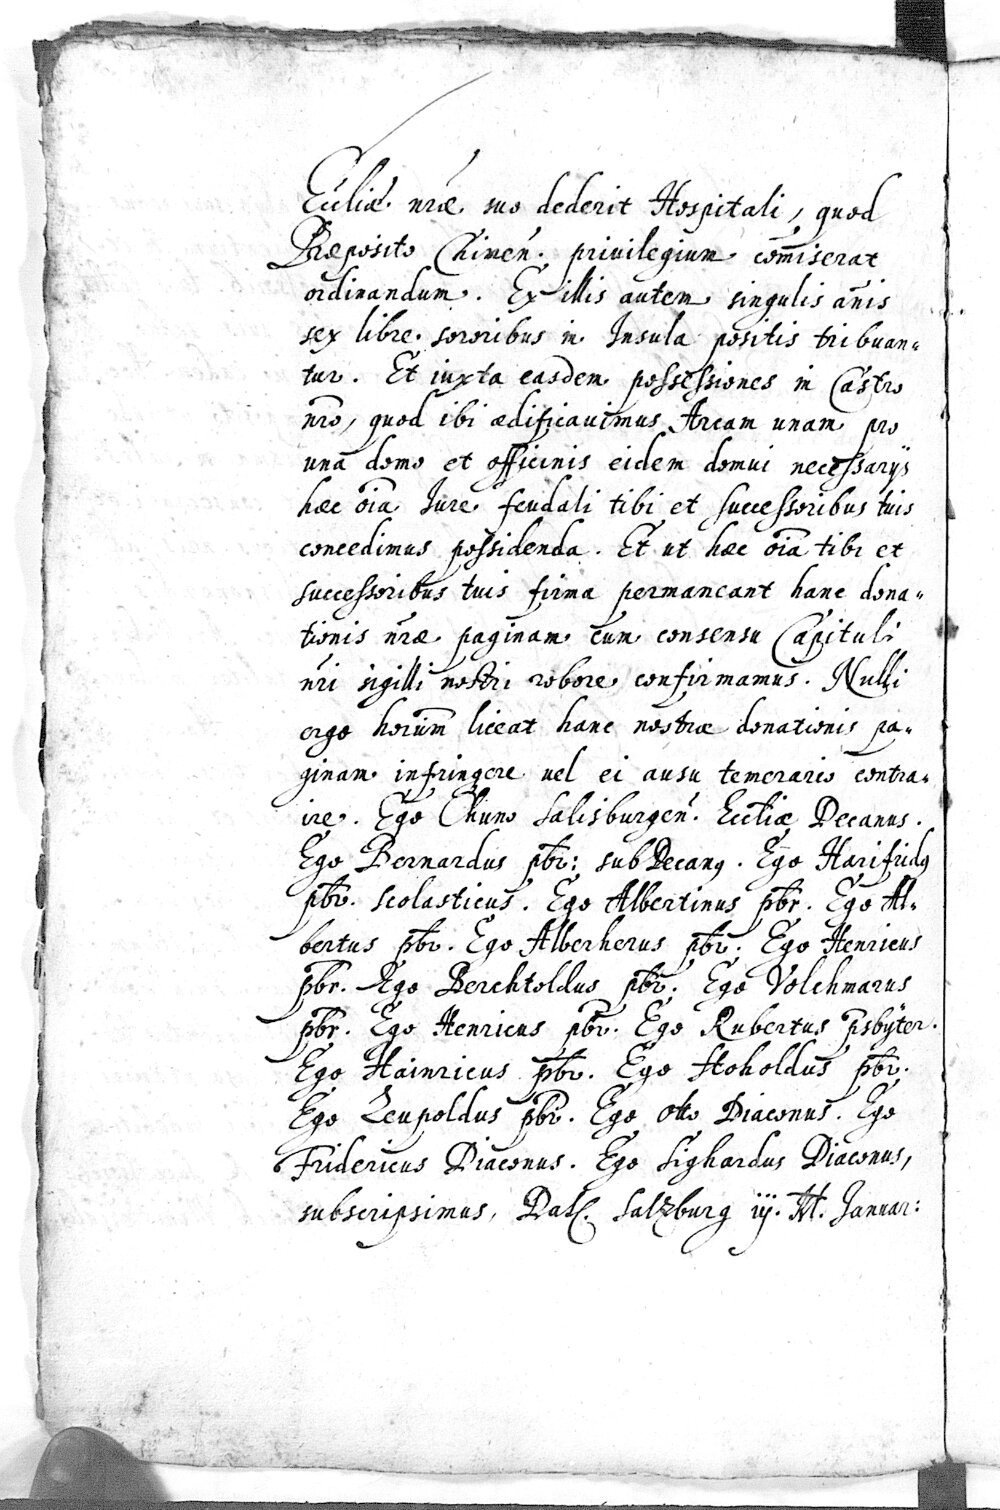 Eccliæ nræ suo dederit Hospitali, quod
Præposito Chimen̄. priuilegium com̄iserat
ordinandum. Ex illis autem singulis an̄is
sex libre sororibus in Insula positis tribuan„
tur. Et iuxta easdem possessiones in Castro
nrō, quod ibi ædificauimus Aream unam pro
una domo et officinis eidem domui necessarijs
hæc oīa Iure feudali tibi et successoribus tuis
concedimus possidenda. Et ut hæc oīa tibi et
successoribus tuis firma permaneant hanc dona„
tionis n̄ræ paginam cum consensu Capituli
n̄ri sigilli nostri robore confirmamus. Nulli
ergo horum̄ liceat hanc nostræ donationis pa„
ginam infringere uel ei ausu temerario contra„
ire. Ego Chuno Salisburgen̄. Eccliæ Decanus.
Ego Bernardus pb̄r: subDecanꝰ. Ego Harifridꝰ
pb̄r. scolasticus. Ego Albertinus pb̄r. Ego Al„
bertus pb̄r. Ego Alberherus pb̄r. Ego Henricus
pb̄r. Ego Berchtoldus pb̄r. Ego Volchmarus
pb̄r. Ego Henricus pb̄r. Ego Rubertus p̄sbÿter.
Ego Hainricus pb̄r. Ego Hoholdus pb̄r.
Ego Leupoldus pb̄r. Ego Otto Diaconus. Ego
Fridericus Diaconus. Ego Sighardus Diaconus,
subscripsimus, Dat. Salzburg iij. Januar: